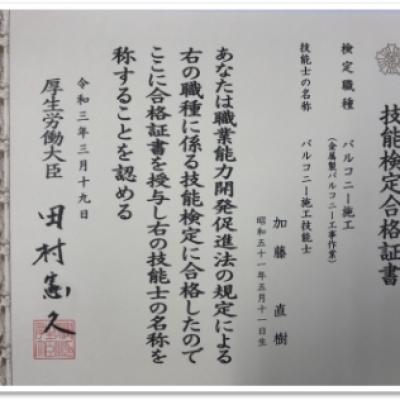 技能検定合格証書
検定職種　バルコニー施工
(金属製バルコニー工事作業)
技能士の名称　バルコニー施工技能士
加藤　直樹
昭和五十一年五月十一日生
あなたは職業能力開発促進法の規定による
右の職種に係る技能検定に合格したので
ここに合格証書を授与し右の技能士の名称を
称することを認める
令和三年三月十九日
厚生労働大臣　田村憲久